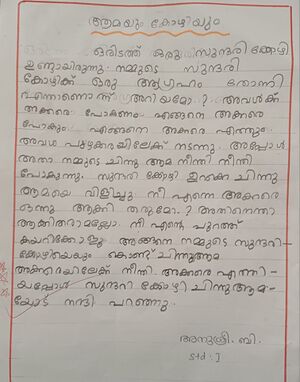 ആമയും കോഴിയും
ഒരിടത്ത് ഒരു സുന്ദരി കോഴി
ഉണ്ടായിരുന്നു. നമ്മുടെ സുന്ദരി
കോഴിക്ക് ഒരു ആഗ്രഹം തോന്നി
എന്താണെന്ന് അറിയാമോ? അവൾക്ക്
അക്കരെ പോകണം എങ്ങനെ അക്കരെ
പോകും. എങ്ങനെ അക്കരെ എത്തും
അവൾ പുഴക്കരയിലേക്ക് നടന്നു. അപ്പോൾ
അതാ നമ്മുടെ ചിന്നു ആമ നീന്തി നീന്തി
പോകുന്നു. സുന്ദരി കോഴി ഉറക്കെ ചിന്നു
ആമയെ വിളിച്ചു നീ എന്നെ അക്കരെ
ഒന്നു ആക്കി തരുമോ? അതിനെന്താ
ആക്കിതരാമല്ലോ. നീ എന്റെ പുറത്ത്
കയറിക്കോളൂ അങ്ങനെ നമ്മുടെ സുന്ദരി-
കോഴിയെയും കൊണ്ട് ചിന്നുആമ
അക്കരെയിലേക്ക് നീന്തി. അക്കരെ എത്തി-
യപ്പോൾ സുന്ദരി കോഴി ചിന്നു ആമ-
യോട് നന്ദി പറഞ്ഞു.
അനുശ്രീ. ബി.
std : I